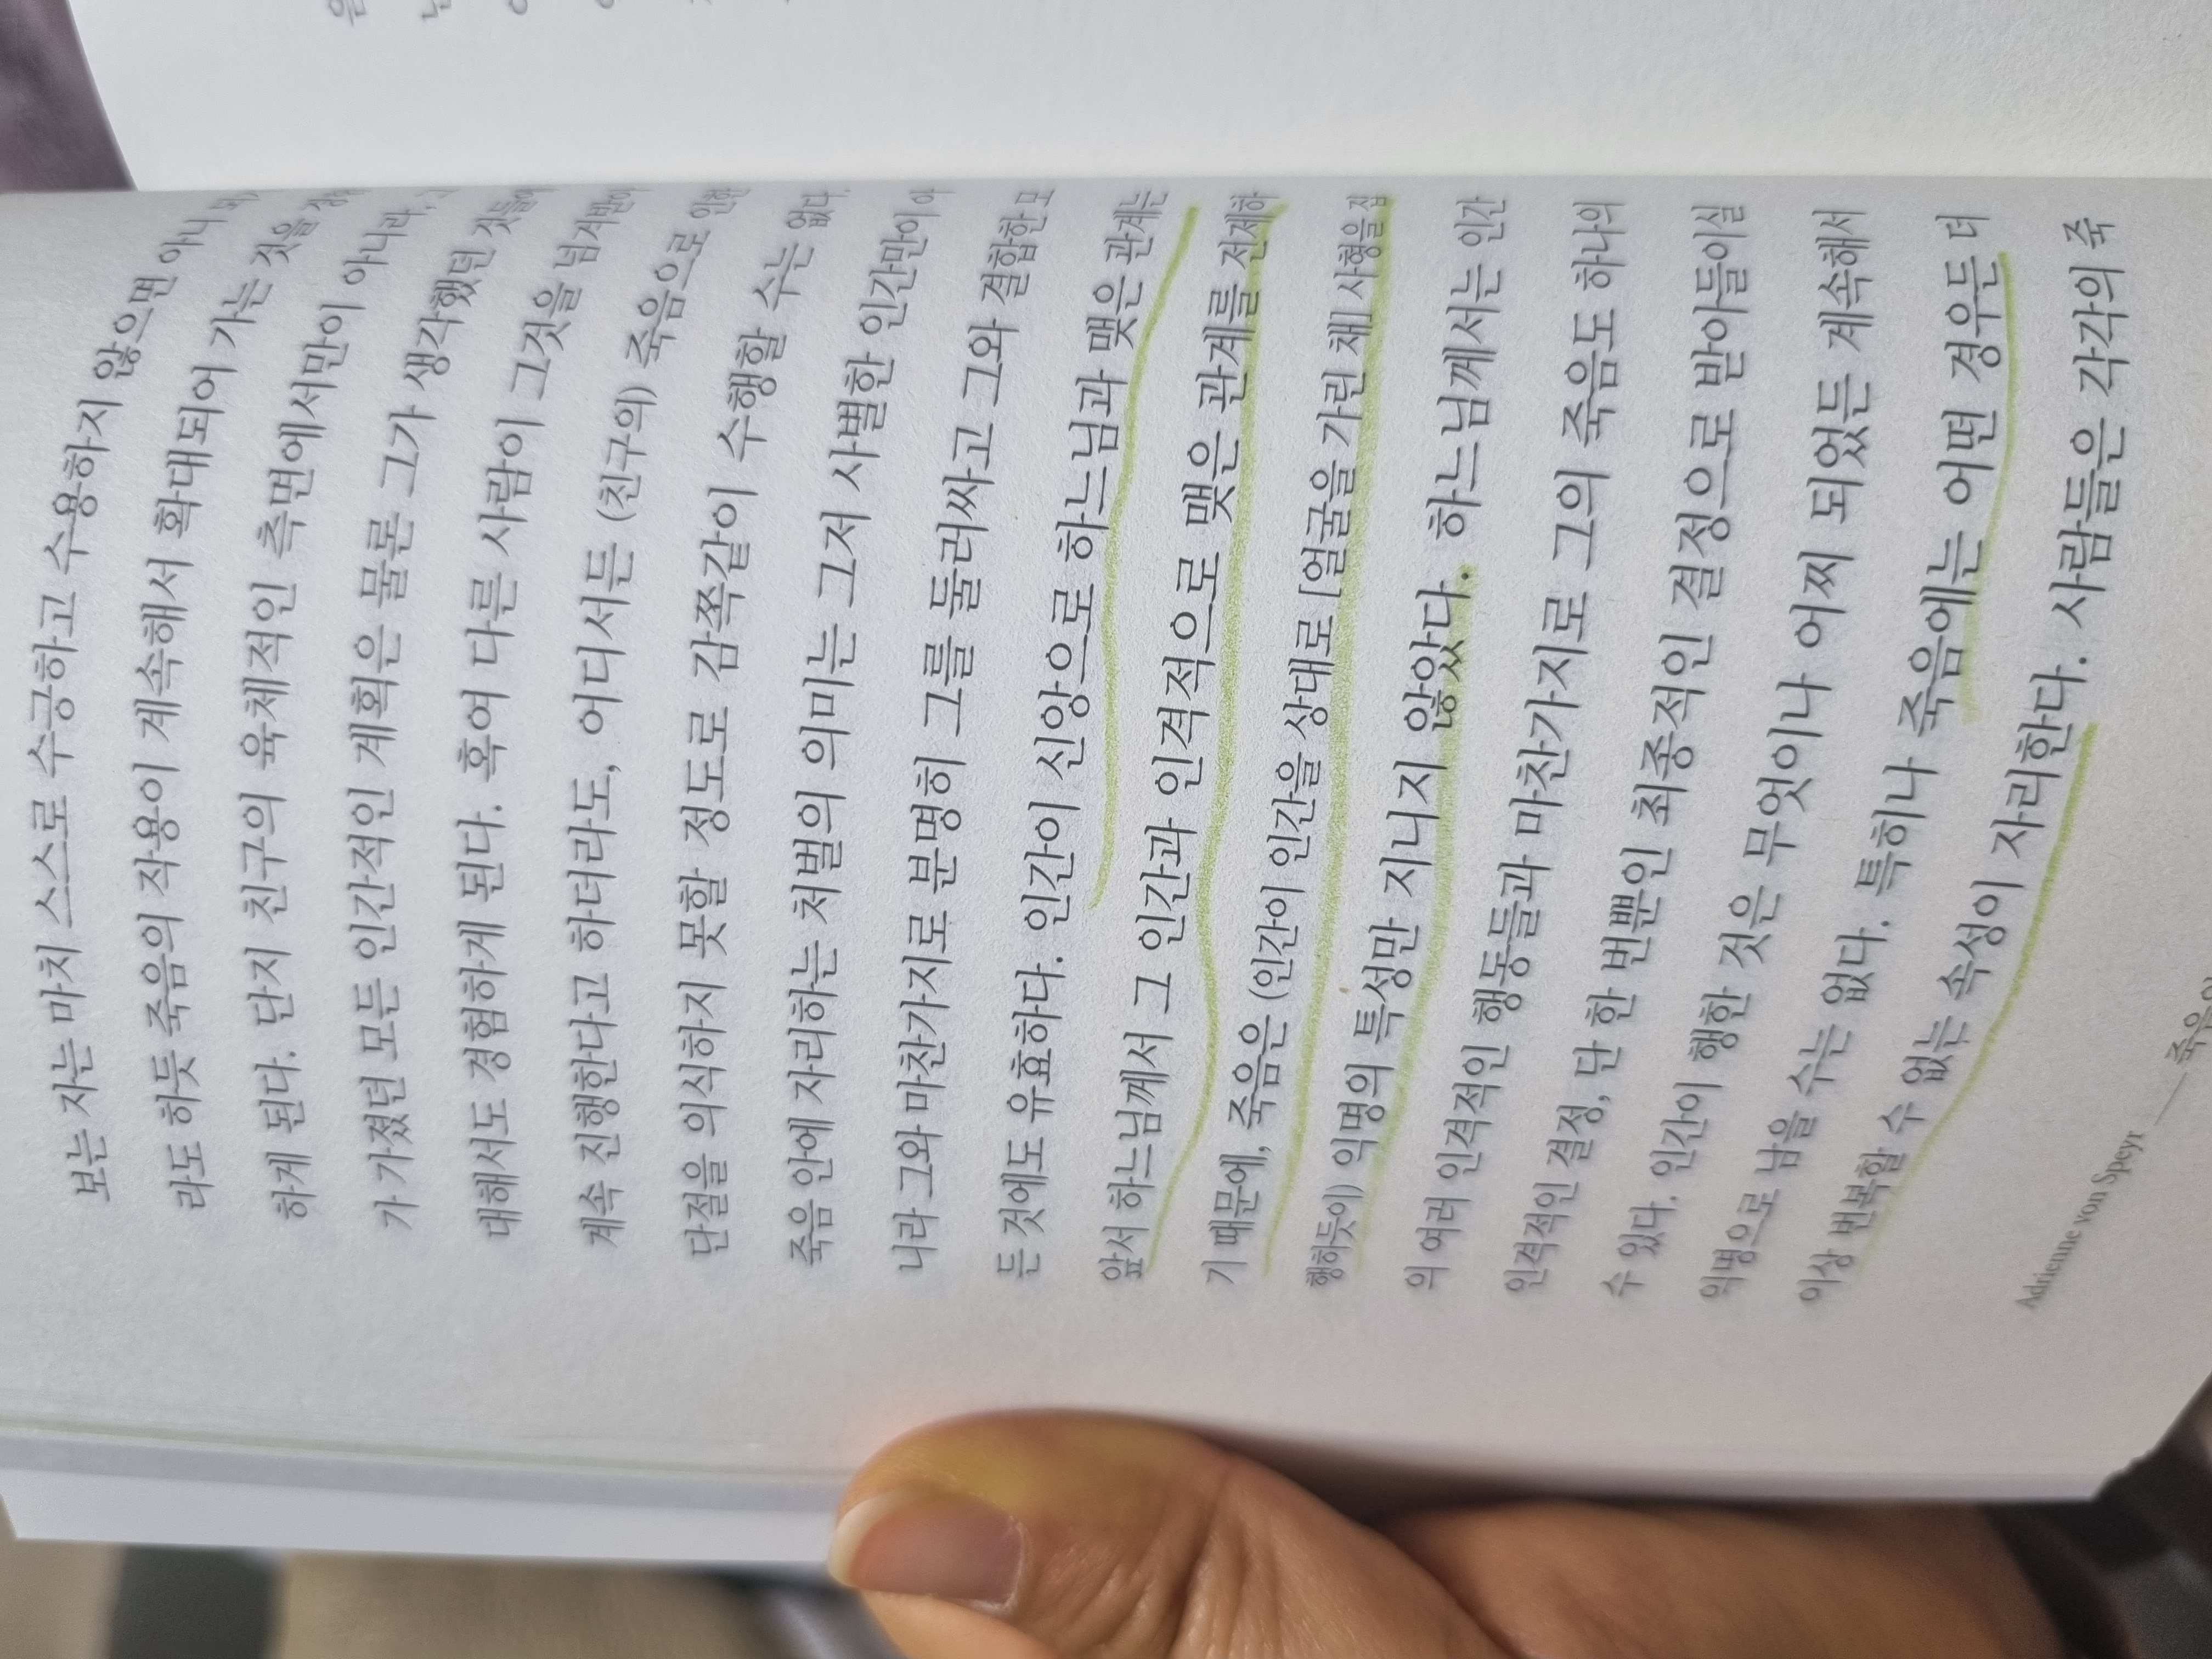 보는 자는 마치 스스로 수긍하고 수용하지 않으면 아니
라도 하듯 죽음의 작용이 계속해서 확대되어 가는 것을
하게 된다. 단지 친구의 육체적인 측면에서만이 아니라,
가 가졌던 모든 인간적인 계획은 물론 그가 생각했던 것들에
대해서도 경험하게 된다. 혹여 다른 사람이 그것을 넘겨받아
계속 진행한다고 하더라도, 어디서든 (친구의) 죽음으로 인한
단절을 의식하지 못할 정도로 감쪽같이 수행할 수는 없다.
죽음 안에 자리하는 처벌의 의미는 그저 사멸한 인간만이 아
니라 그와 마찬가지로 분명히 그를 둘러싸고 그와 결합한 모
든 것에도 유효하다. 인간이 신앙으로 하느님과 맺은 관계는
앞서 하느님께서 그 인간과 인격적으로 맺은 관계를 전제하
기 때문에, 죽음은 (인간이 인간을 상대로 [얼굴을 가린 채] 사형을 집
행하듯이) 익명의 특성만 지니지 않았다. 하느님께서는 인간
의 여러 인격적인 행동들과 마찬가지로 그의 죽음도 하나의
인격적인 결정, 단 한 번뿐인 최종적인 결정으로 받아들이실
수 있다. 인간이 행한 것은 무엇이나 어찌 되었든 계속해서
익명으로 남을 수는 없다. 특히나 죽음에는 어떤 경우든 더
이상 번복할 수 없는 속성이 자리한다. 사람들은 각각의 죽
Adrienne von Speyr — 죽음의